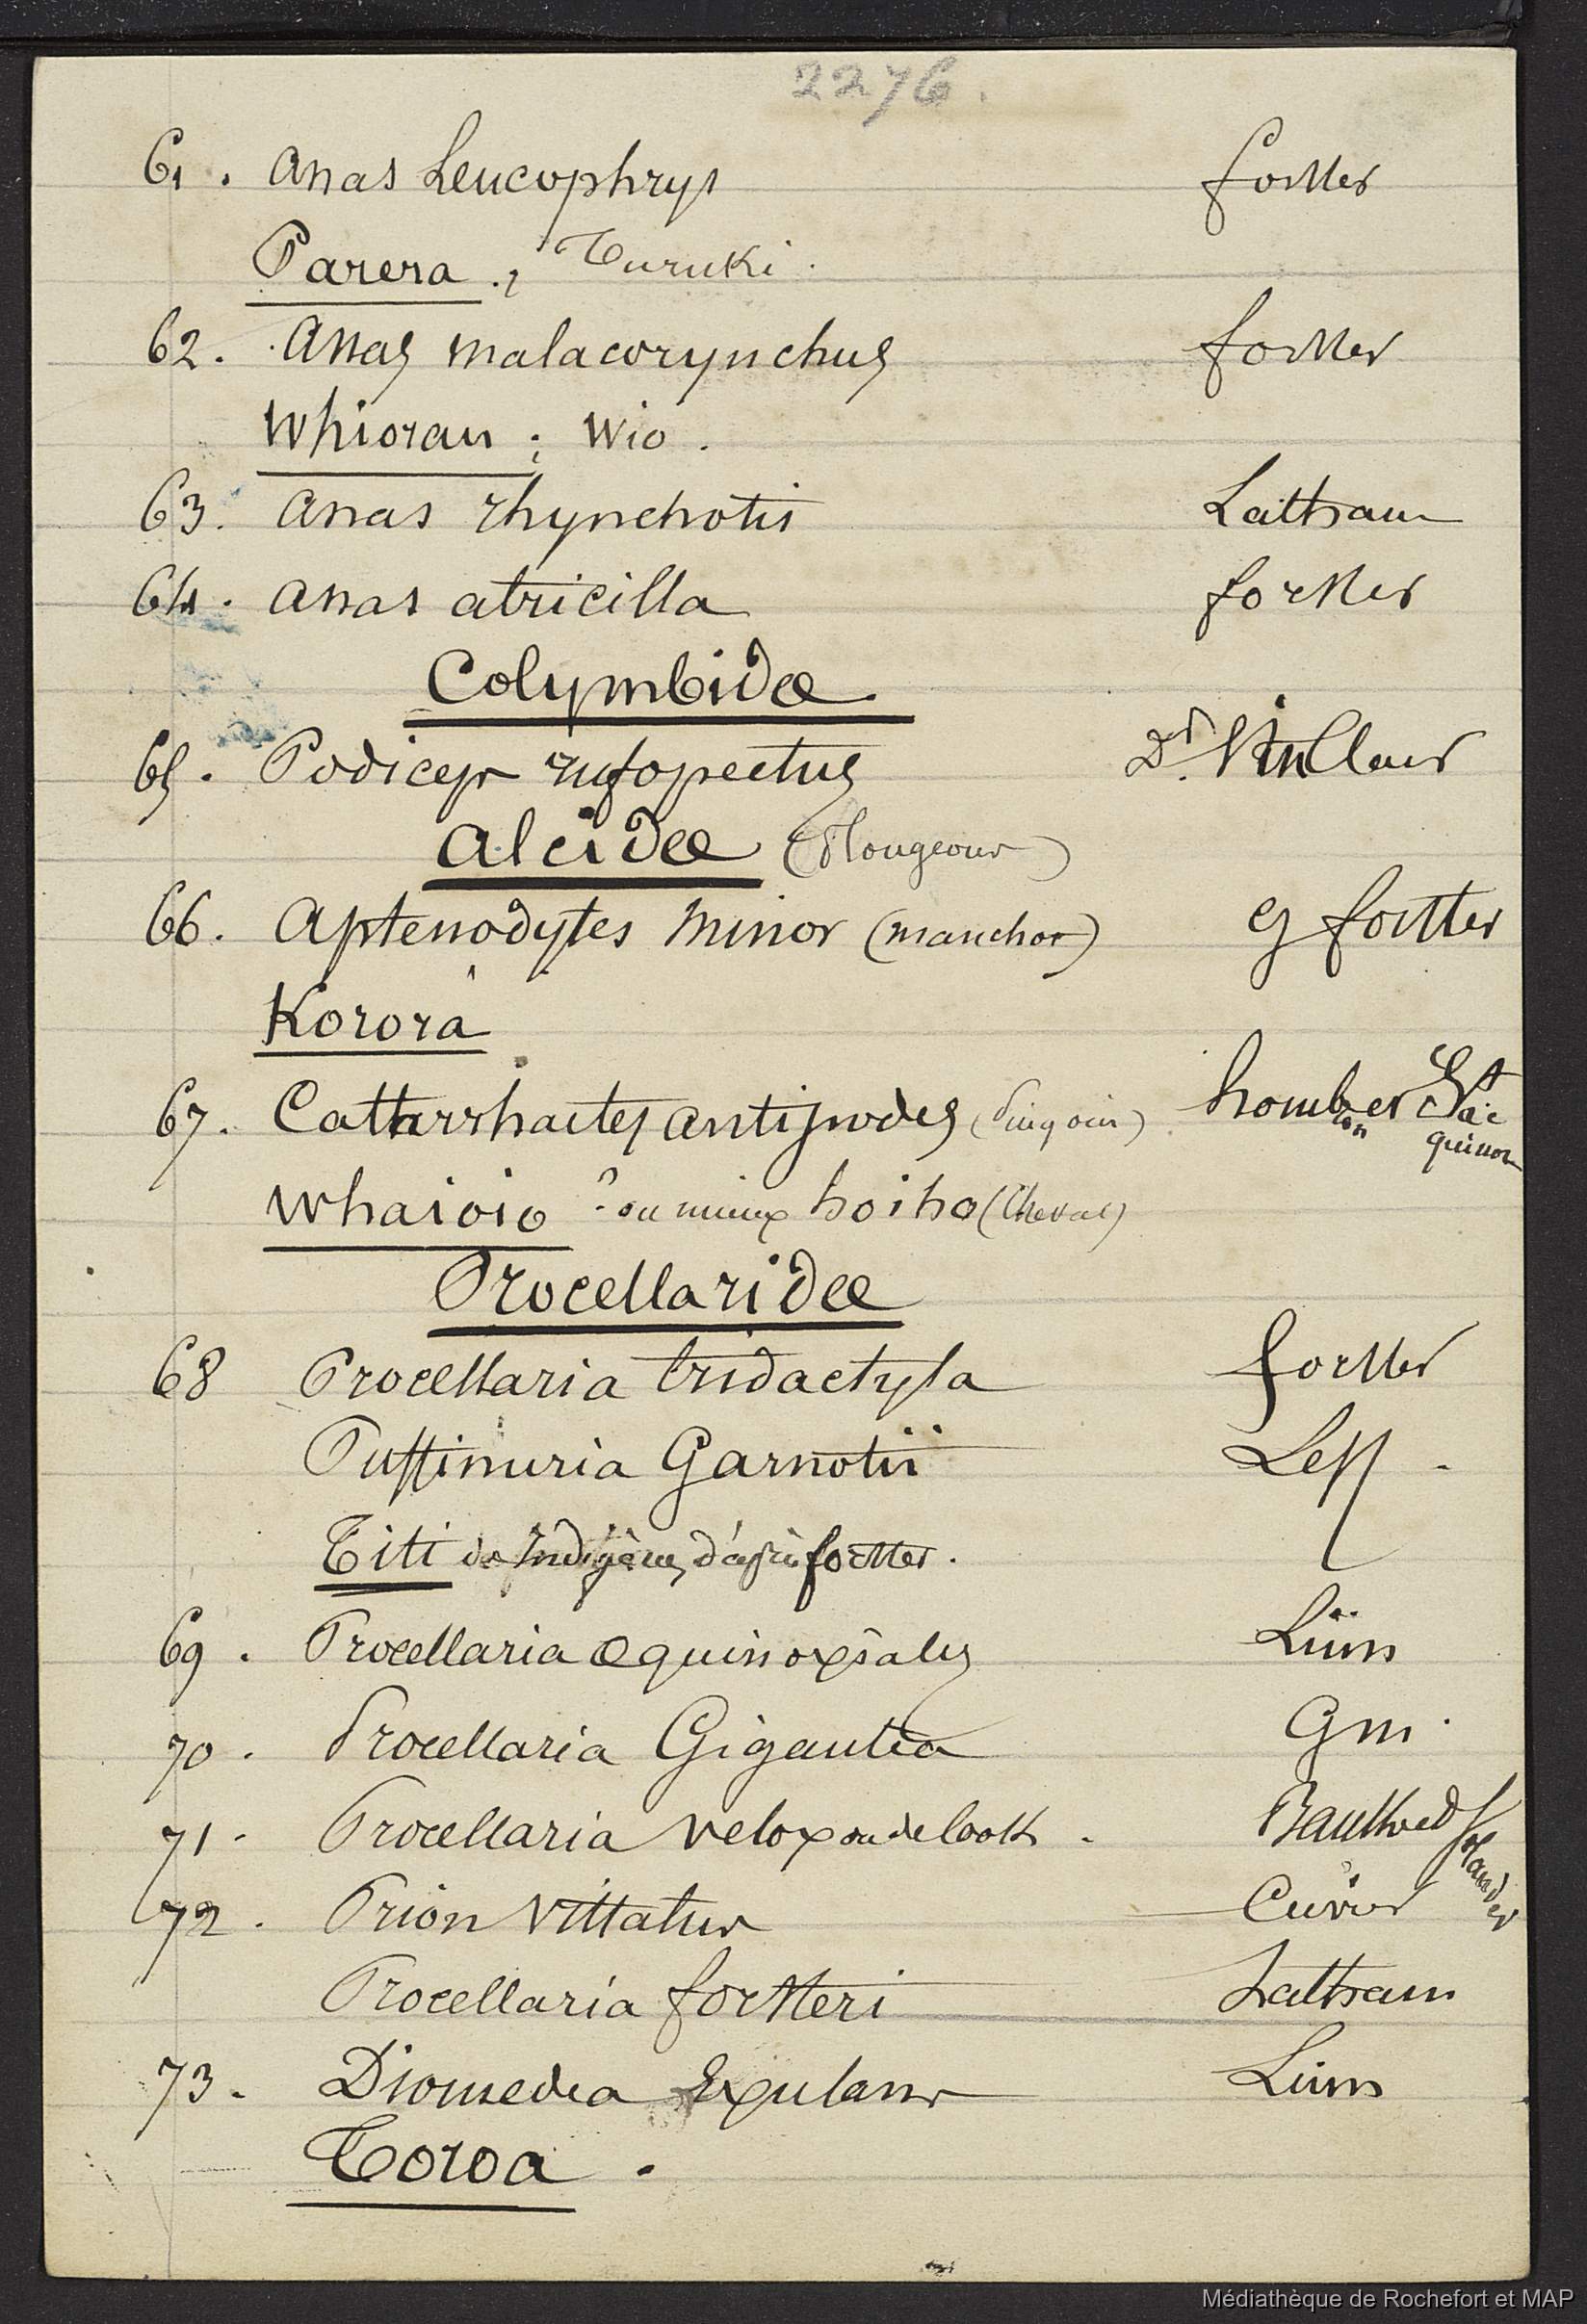 2276.
61. Anas Leucophrys forster
Parera.; Turuki.
62. Anas malacorynchus forster
Whiorau; Wio.
63. Anas rhynchotis Lattham
64. Anas atricilla forster
Colymbidæ.
65. Podiceps rufopectus Dr.
Alcidæ (Plongeons)
66. Aptenodytes minor (manchot) G forster
Korora
67. Catharrhactes antipodes (Pingoin) hombron et Jacquinot
Whaioio ? ou mieux hoiho (Cheval)
Procellaridæ
68 Procellaria tridactyla forster
Puffinuria Garnotii Less -
Titi des Indigènes d'après forster.
69. Procellaria æquinoxialis Linn
70. Procellaria Gigantea Gm.
71. Procellaria velox ou de Cook. Banks et Solander
72. Prion vittatus Cuvier
Procellaria forsteri Lattham
73. Diomedea Exulans Linn
Toroa.
Médiathèque de Rochefort et MAP